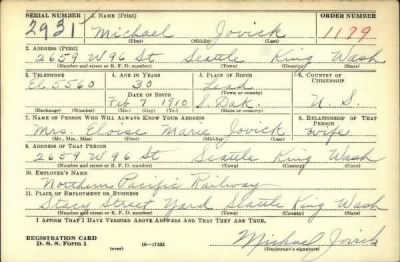 SERIAL NUMBER 1. NAME (Print) ORDER NUMBER
2931 Michael Jovick 1179
(First) (Middle) (Last)
2. ADDRESS (Print)
2659 W 96 St Seattle King Wash
(Number and street or R. F. D. number) (Town) (County) (State)
3. TELEPHONE 4. AGE IN YEARS 5. PLACE OF BIRTH 6. COUNTRY OF CITIZENSHIP
El 5560 30 Lead
DATE OF BIRTH (Town or county)
Feb 7 1910 S. Dak. U. S.
(Exchange) (Number) (Mo.) (Day) (Yr.) (State or country)
7. NAME OF PERSON WHO WILL ALWAYS KNOW YOUR ADDRESS 8. RELATIONSHIP OF THAT PERSON
Mrs. Eloise Marie Jovick wife
(Mr., Mrs., Miss) (First) (Middle) (Last)
9. ADDRESS OF THAT PERSON
2659 W 96 St Seattle King Wash
(Number and street or R. F. D. number) (Town) (County) (State)
10. EMPLOYER'S NAME
Northern Pacific Railway
11. PLACE OF EMPLOYMENT OR BUSINESS
Stacy Street Yard Seattle King Wash
(Number and street or R. F. D. number) (Town) (County) (State)
I AFFIRM THAT I HAVE VERIFIED ABOVE ANSWERS AND THAT THEY ARE TRUE.
REGISTRATION CARD
D. S. S. Form 1 (over) Michael Jovick
(Registrant's signature)